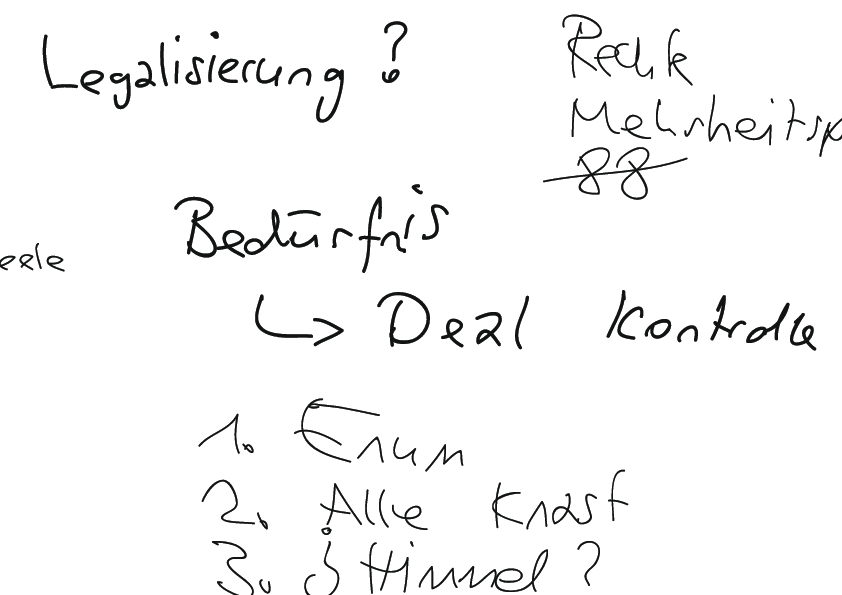 Legalisierung ?
Mehrheitsp
88
Bedürfnis
eele
↳ Deal Kontrolle
1. Enum
2. Alle Knast
3. Himmel ?